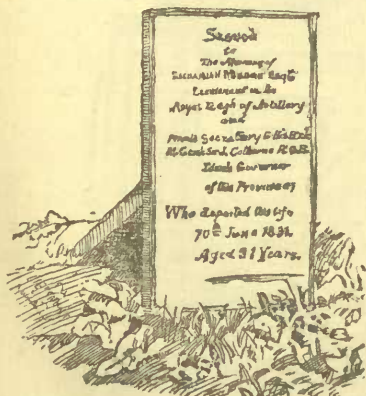 Sacred
to
The Memory of
Zachariah Mudge Esqr
Lieutenant in the
Royal Regt of Artillery
and
Private Secretary to His Exc
Sir John Colborne K.C.B.
Governor
of this Province
Who departed this life
10th June 1831
Aged 31 Years.